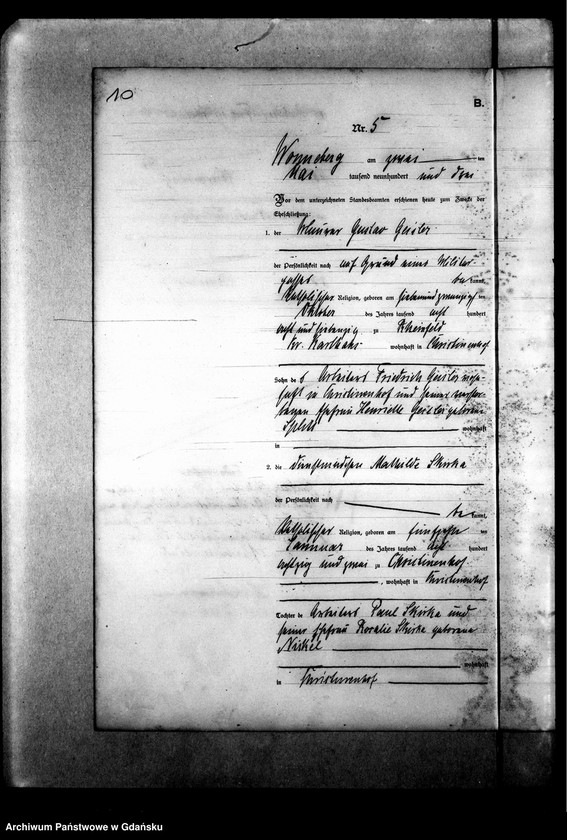 10
B.
Nr. 5
Wonneberg am zwei ten
Mai tausend neunhundert und drei
Vor dem unterzeichneten Standesbeamten erschienen heute zum Zwecke der
Eheschließung:
1. der Maurer Gustav Geisler
der Persönlichkeit nach auf Grund eines Militär-
passes be kannt,
katholischer Religion, geboren am siebenundzwanzig ten
Oktober des Jahres tausend acht hundert
acht und siebenzig zu Rheinfeld
Kr. Karthaus wohnhaft in Christinenhof
Sohn des Arbeiters Friedrich Geisler wohn-
haft in Christinenhof und seiner verstor-
benen Ehefrau Henriette Geisler geborene
wohnhaft
in
2. die Dienstmädchen Mathilde Skirka
der Persönlichkeit nach
be kannt,
katholischer Religion, geboren am fünfzehn ten
Januar des Jahres tausend acht hundert
achtzig und zwei zu Christinenhof
, wohnhaft in Christinenhof
Tochter des Arbeiters Paul Skirka und
seiner Ehefrau Rosalie Skirka geborene
Nickel
wohnhaft
in Christinenhof
Archiwum Państwowe w Gdańsku